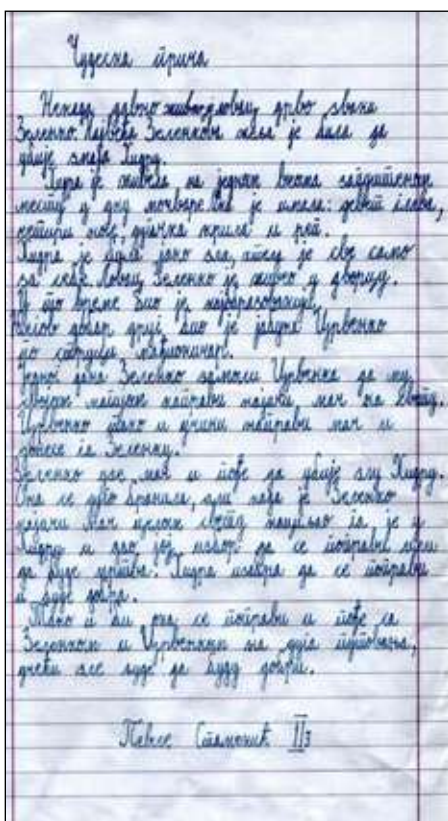 Чудесна прича
Некада давно живео је ловац, дрво звани
Зеленко. Највећа Зеленкова жеља је била да
убије змаја Хидру.
Хидра је живела на једном веома заштићеном
месту у дну мочваре. Она је имала: девет глава,
четири ноге, дугачка крила и реп.
Хидра је била јако зла, хтела је све само
за себе. Ловац Зеленко је живео у дворцу.
У то време био је најхрабрији
Његов добар друг био је јабука Црвенко
по мађионичар.
Једног дана Зеленко замоли Црвенка да му
својом магијом направи најјачи мач на свету.
Црвенко тако и учини направи мач и
донесе га Зеленку.
Зеленко узе мач и пође да убије злу Хидру.
Она се дуго бранила, али када је Зеленко
најјачи мач на целом свету нациљао га је у
Хидру и дао јој избор: да се поправи или
да буде убијена. Хидра изабра да се поправи
и буде добра.
Тако и би она се поправи и пође са
Зеленком и Црвенком на дуга путовања,
учећи све људе да буду добри.
Стаменић II3